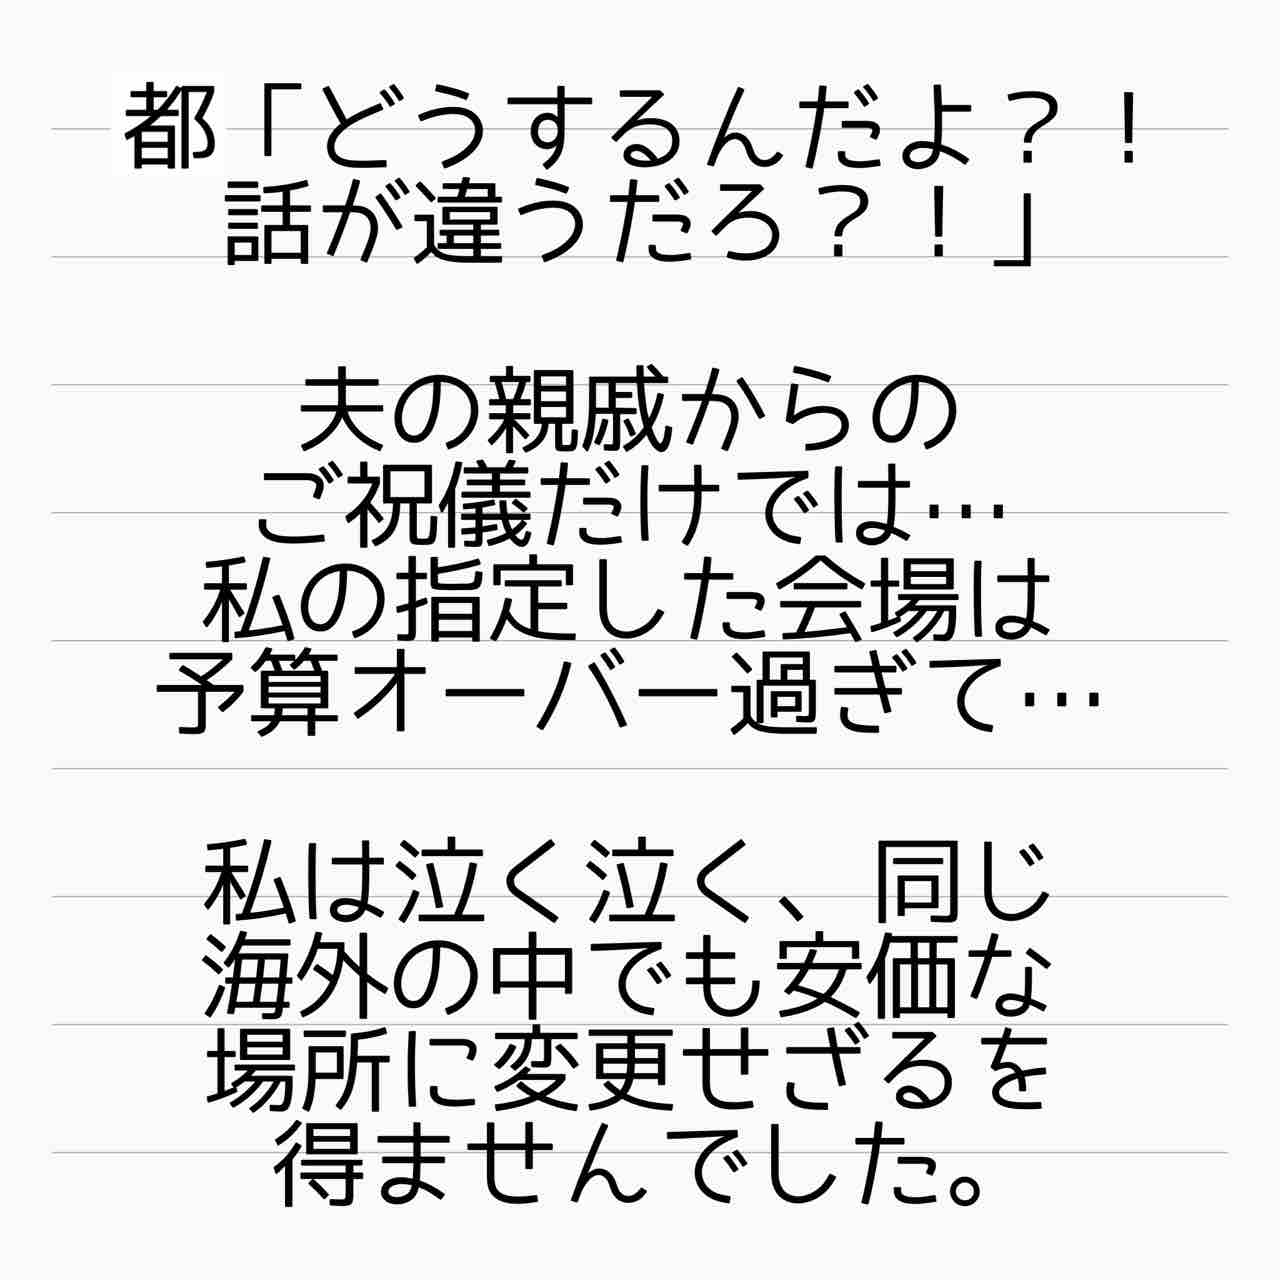 都「どうするんだよ？！
話が違うだろ？！」
夫の親戚からの
ご祝儀だけでは…
私の指定した会場は
予算オーバー過ぎて…
私は泣く泣く、同じ
海外の中でも安価な
場所に変更せざるを
得ませんでした。